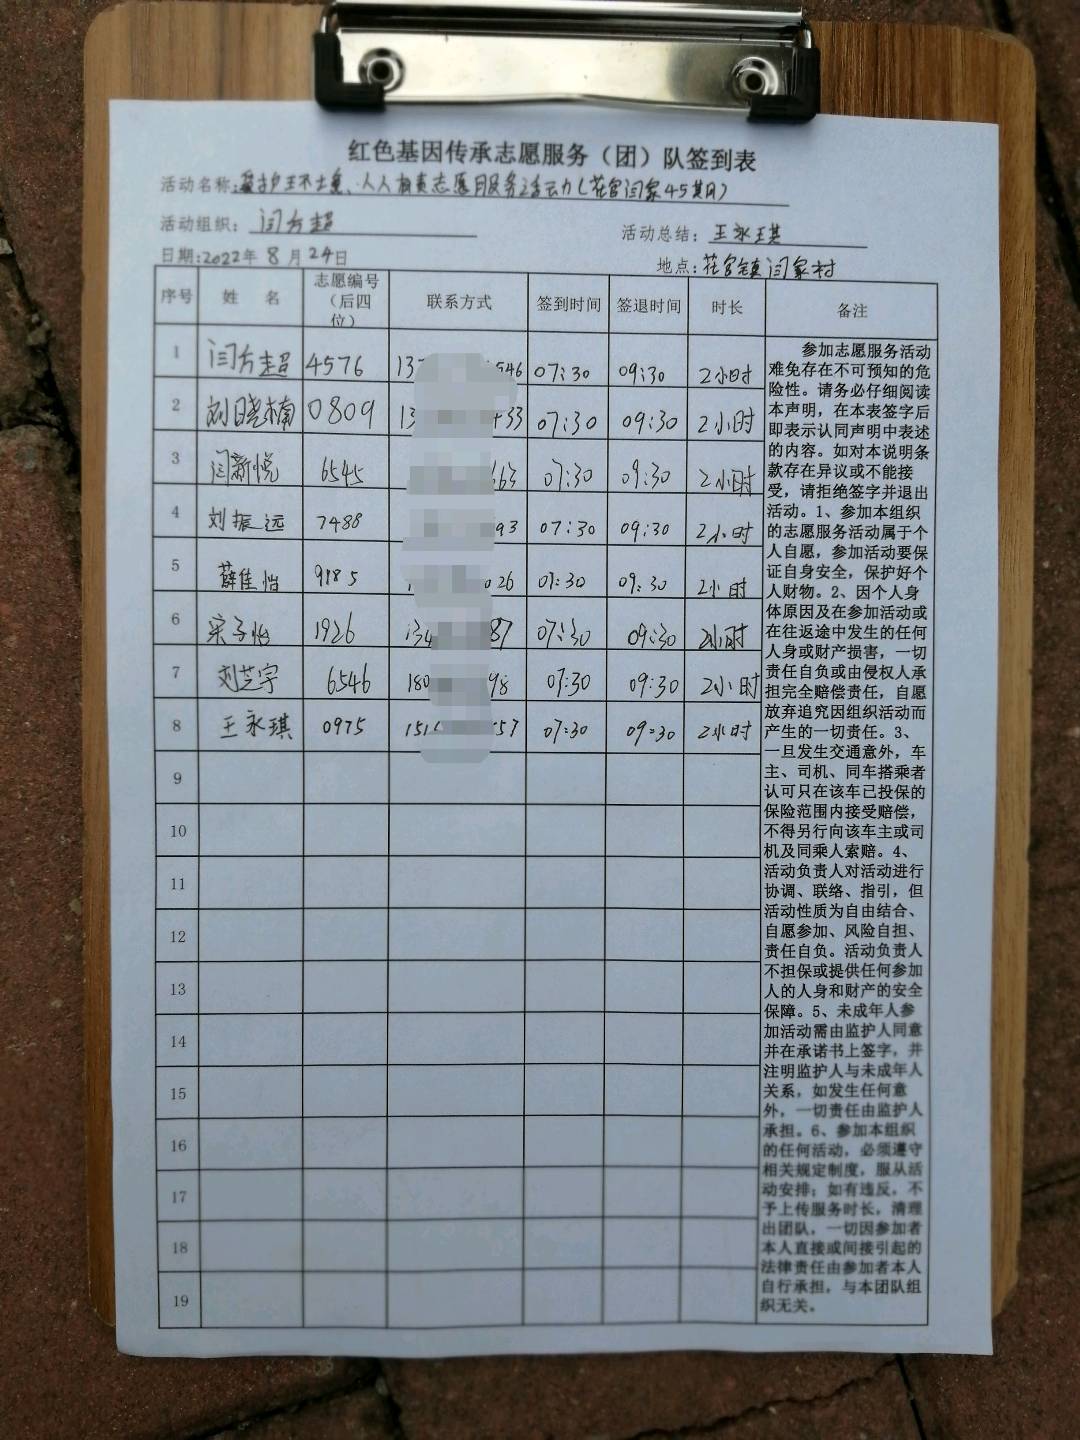 红色基因传承志愿服务（团）队签到表
活动名称:爱护环境、人人有责志愿服务活动(花官闫家45期)
活动组织：闫方超
活动总结：王永琪
日期:2022年8月24日
地点:花官镇闫家村
序号 姓 名 志愿编号（后四位） 联系方式 签到时间 签退时间 时长 备注
1 闫方超 4576 13 546 07:30 09:30 2小时
2 刘晓楠 0809 13 433 07:30 09:30 2小时
3 闫新悦 6545 63 07:30 09:30 2小时
4 刘振远 7488 93 07:30 09:30 2小时
5 薛佳怡 9185 026 07:30 09:30 2小时
6 宋子怡 1926 134 87 07:30 09:30 2小时
7 刘芝宇 6546 180 98 07:30 09:30 2小时
8 王永琪 0975 151 557 07:30 09:30 2小时
9
10
11
12
13
14
15
16
17
18
19
参加志愿服务活动
难免存在不可预知的危
险性。请务必仔细阅读
本声明，在本表签字后
即表示认同声明中表述
的内容。如对本说明条
款存在异议或不能接
受，请拒绝签字并退出
活动。1、参加本组织
的志愿服务活动属于个
人自愿，参加活动要保
证自身安全，保护好个
人财物。2、因个人身
体原因及在参加活动或
在往返途中发生的任何
人身或财产损害，一切
责任自负或由侵权人承
担完全赔偿责任，自愿
放弃追究因组织活动而
产生的一切责任。3、
一旦发生交通意外，车
主、司机、同车搭乘者
认可只在该车已投保的
保险范围内接受赔偿，
不得另行向该车主或司
机及同乘人索赔。4、
活动负责人对活动进行
协调、联络、指引，但
活动性质为自由结合、
自愿参加、风险自担、
责任自负。活动负责人
不担保或提供任何参加
人的人身和财产的安全
保障。5、未成年人参
加活动需由监护人同意
并在承诺书上签字，并
注明监护人与未成年人
关系，如发生任何意
外，一切责任由监护人
承担。6、参加本组织
的任何活动，必须遵守
相关规定制度，服从活
动安排；如有违反，不
予上传服务时长，清理
出团队，一切因参加者
本人直接或间接引起的
法律责任由参加者本人
自行承担，与本团队组
织无关。